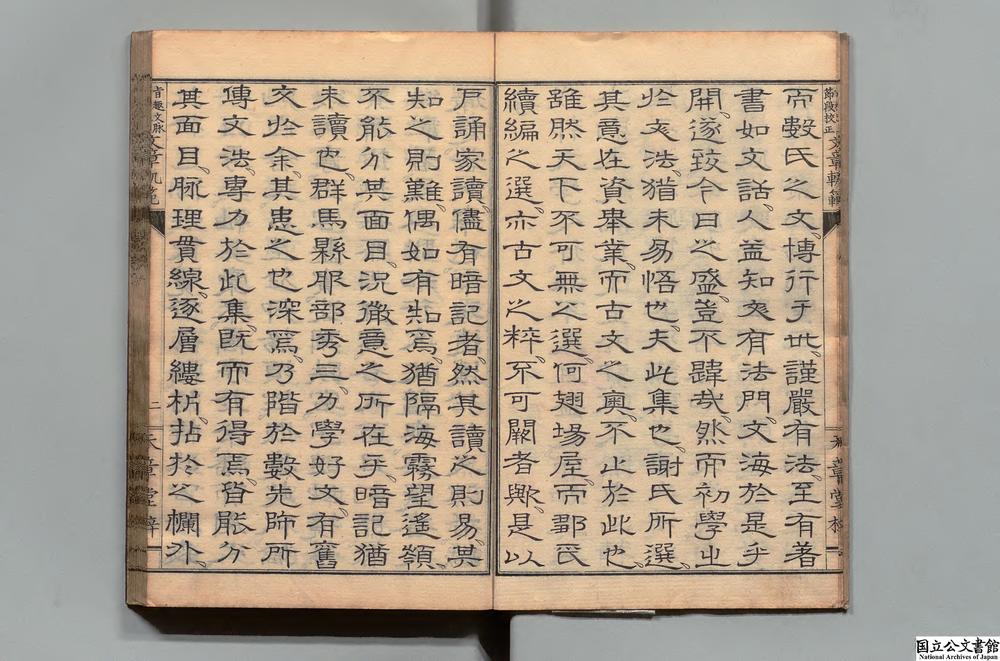 而數氏之文、博行于世、謹嚴有法、至有著
書如文話、人益知文有法門、文海於是乎
開、遂致今日之盛、豈不韙哉、然而初學之
於文法、猶未易悟也、夫此集也、謝氏所選、
其意在資舉業、而古文之奧、不止於此也、
雖然天下不可無之選、何翅場屋、而鄒氏
續編之選、亦古文之粹、不可闕者歟、是以
戶誦家讀、儘有暗記者、然其讀之則易、其
知之則難、偶如有知焉、猶隔海霧望遙嶺、
不能分其面目、況微意之所在乎、暗記猶
未讀也、群馬縣服部秀三、力學好文、有舊
交於余、其患之也深焉、乃階於數先師所
傳文法、專力於此集、既而有得焉、皆能分
其面目、脈理貫線、逐層縷析、拈於之欄外、
旨趣文脈
文章軌範
二
章堂梓
国立公文書館
National Archives of Japan